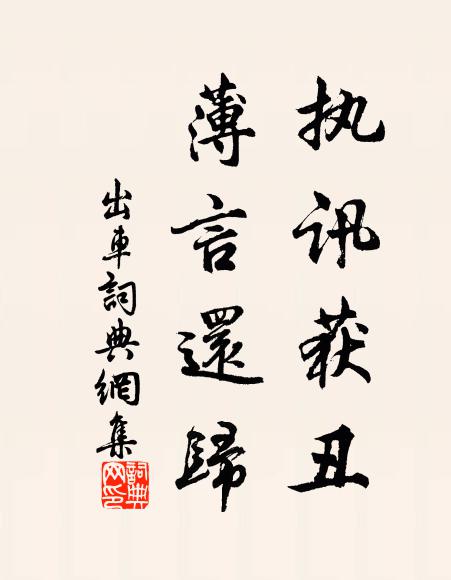 执讯获丑
薄言還歸
出車詞典網集
詞典网印